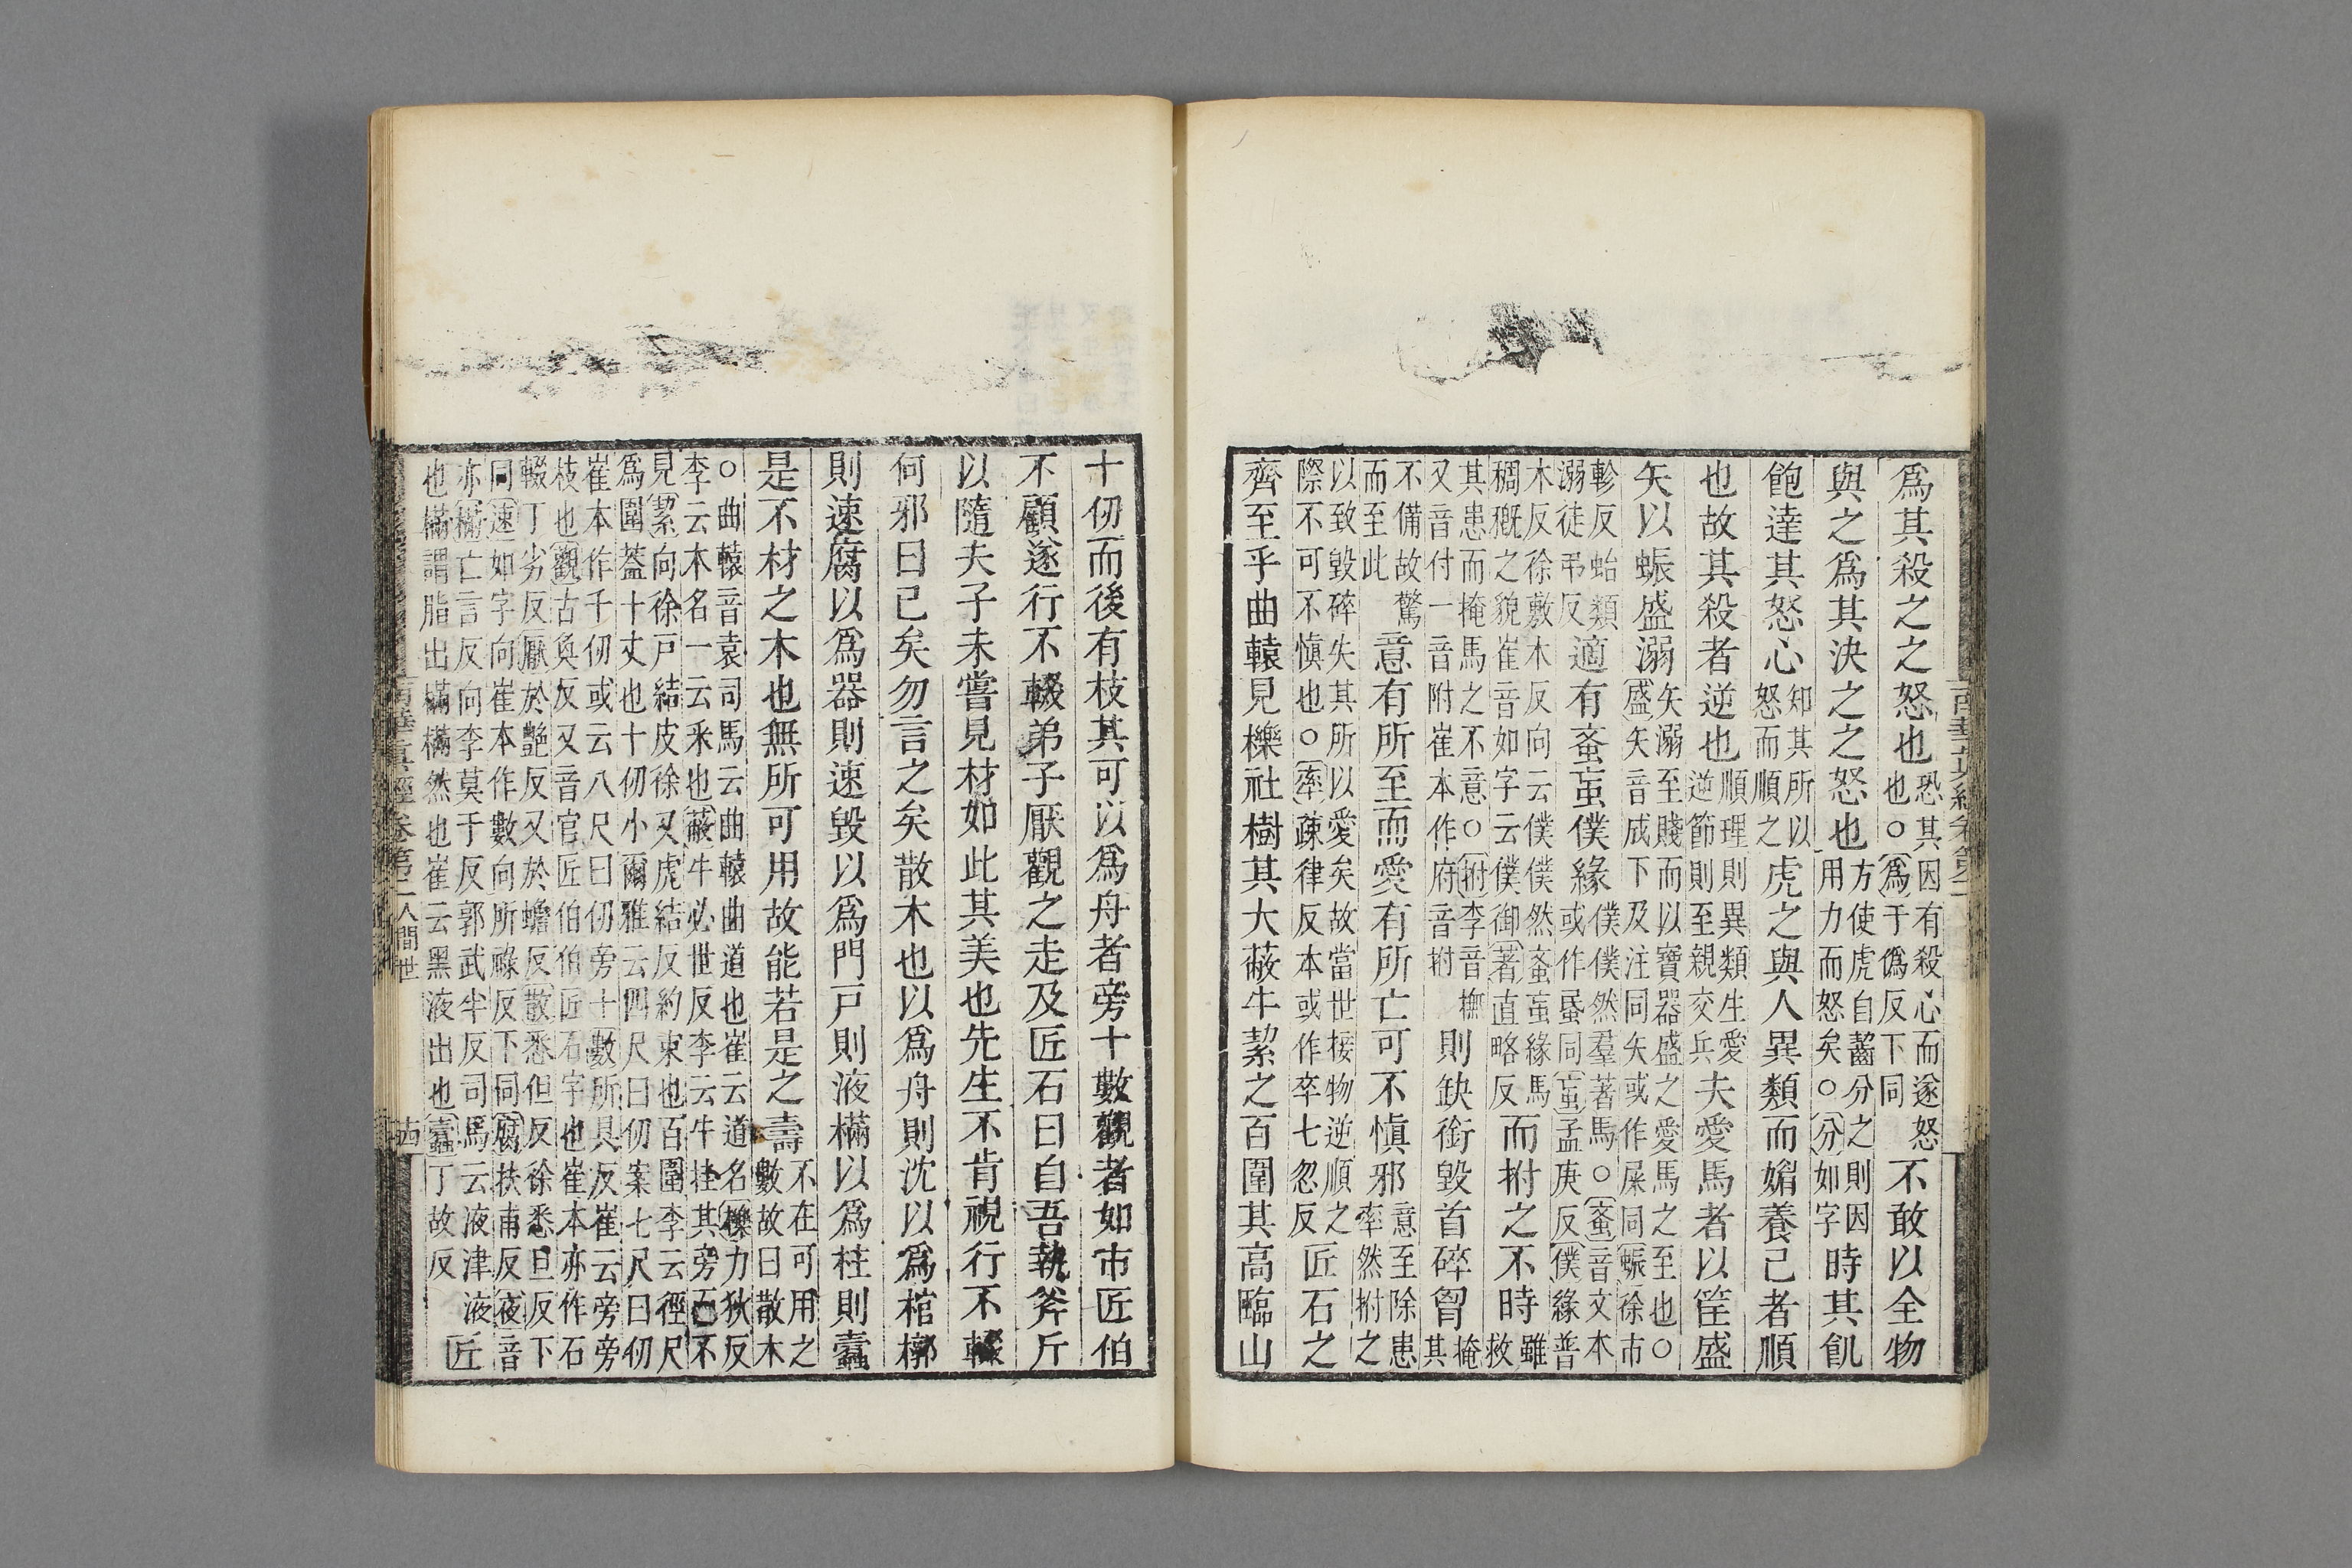 爲其殺之之怒也恐其因有殺心而遂怒也○爲于僞反下同不敢以全物
與之爲其決之之怒也方使虎自齧分之則因用力而怒矣○分如字時其飢
飽達其怒心知其所以怒而順之虎之與人異類而媚養己者順
也故其殺者逆也順理則異類生愛逆節則至親交兵夫愛馬者以筐盛
矢以蜄盛溺矢溺至賤而以寶器盛之愛馬之至也○盛矢音成下及注同矢或作屎同蜄徐市
軫反蛤類溺徒弔反適有蚉䖟僕緣僕僕然羣著馬○蚉音文本或作䖟同䖟孟庚反僕緣普
木反徐敷木反向云僕僕然蚉䖟緣馬稠穊之貌崔音如字云僕御著直略反而拊之不時雖救
其患而掩馬之不意○拊李音撫又音付一音附崔本作府音拊則缺銜毀首碎胷掩其
不備故驚而至此意有所至而愛有所亡可不慎邪意至除患率然拊之
以致毀碎失其所以愛矣故當世接物逆順之際不可不慎也○率疎律反本或作卒七忽反匠石之
齊至乎曲轅見櫟社樹其大蔽牛絜之百圍其高臨山
十仞而後有枝其可以爲舟者旁十數觀者如市匠伯
不顧遂行不輟弟子厭觀之走及匠石曰自吾執斧斤
以隨夫子未嘗見材如此其美也先生不肯視行不輟
何邪曰已矣勿言之矣散木也以爲舟則沈以爲棺槨
則速腐以爲器則速毀以爲門戸則液樠以爲柱則蠹
是不材之木也無所可用故能若是之壽不在可用之數故曰散木
○曲轅音袁司馬云曲轅曲道也崔云道名櫟力狄反李云木名一云釆也蔽牛必世反李云牛挂其旁而不
見絜向徐戸結反徐又虎結反約束也百圍李云徑尺爲圍蓋十丈也十仞小爾雅云四尺曰仞案七尺曰仞
崔本作千仞或云八尺曰仞旁十數所具反崔云旁旁枝也觀古奐反又音官匠伯伯匠石字也崔本亦作石
輟丁劣反厭於艷反又於蟾反散悉但反徐悉旦反下同速如字向崔本作數向所祿反下同腐扶甫反液音
亦樠亡言反向李莫干反郭武半反司馬云液津液也樠謂脂出樠樠然也崔云黑液出也蠹丁故反匠
南華真經卷第二
人間世
十四